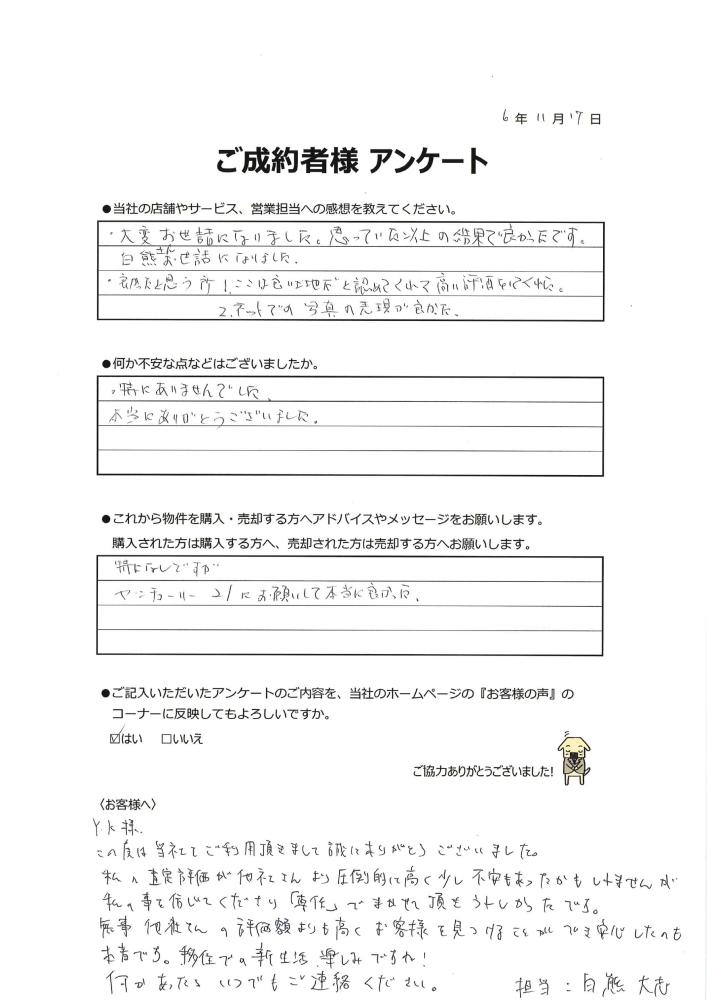 6年11月17日
ご成約者様 アンケート
●当社の店舗やサービス、営業担当への感想を教えてください。
・大変お世話になりました。思っていた以上の結果で良かったです。
白熊さんお世話になりました.
・良かったと思う所 1.ここは良い地域だと認めてくれて高い評価をしてくれた。
2.ネットでの写真の表現が良かった.
●何か不安な点などはございましたか。
・特にありませんでした、
本当にありがとうございました.
●これから物件を購入・売却する方へアドバイスやメッセージをお願いします。
購入された方は購入する方へ、売却された方は売却する方へお願いします。
特になしですが
センチュリー21にお願いして本当に良かった.
●ご記入いただいたアンケートのご内容を、当社のホームページの『お客様の声』の
コーナーに反映してもよろしいですか。
☑はい ☐いいえ
ご協力ありがとうございました!
〈お客様へ〉
Y.K様.
この度は当社にてご利用頂きまして誠にありがとうございました。
私の査定評価が他社さんより圧倒的に高く少し不安もあったかもしれませんが
私の事を信じてくださり「専任」でまかせて頂きうれしかったです。
無事他社さんの評価額よりも高くお客様を見つけることができ安心したのも
本音です。移住での新生活楽しみですね!
何かあったらいつでもご連絡ください。 担当:白熊 大志